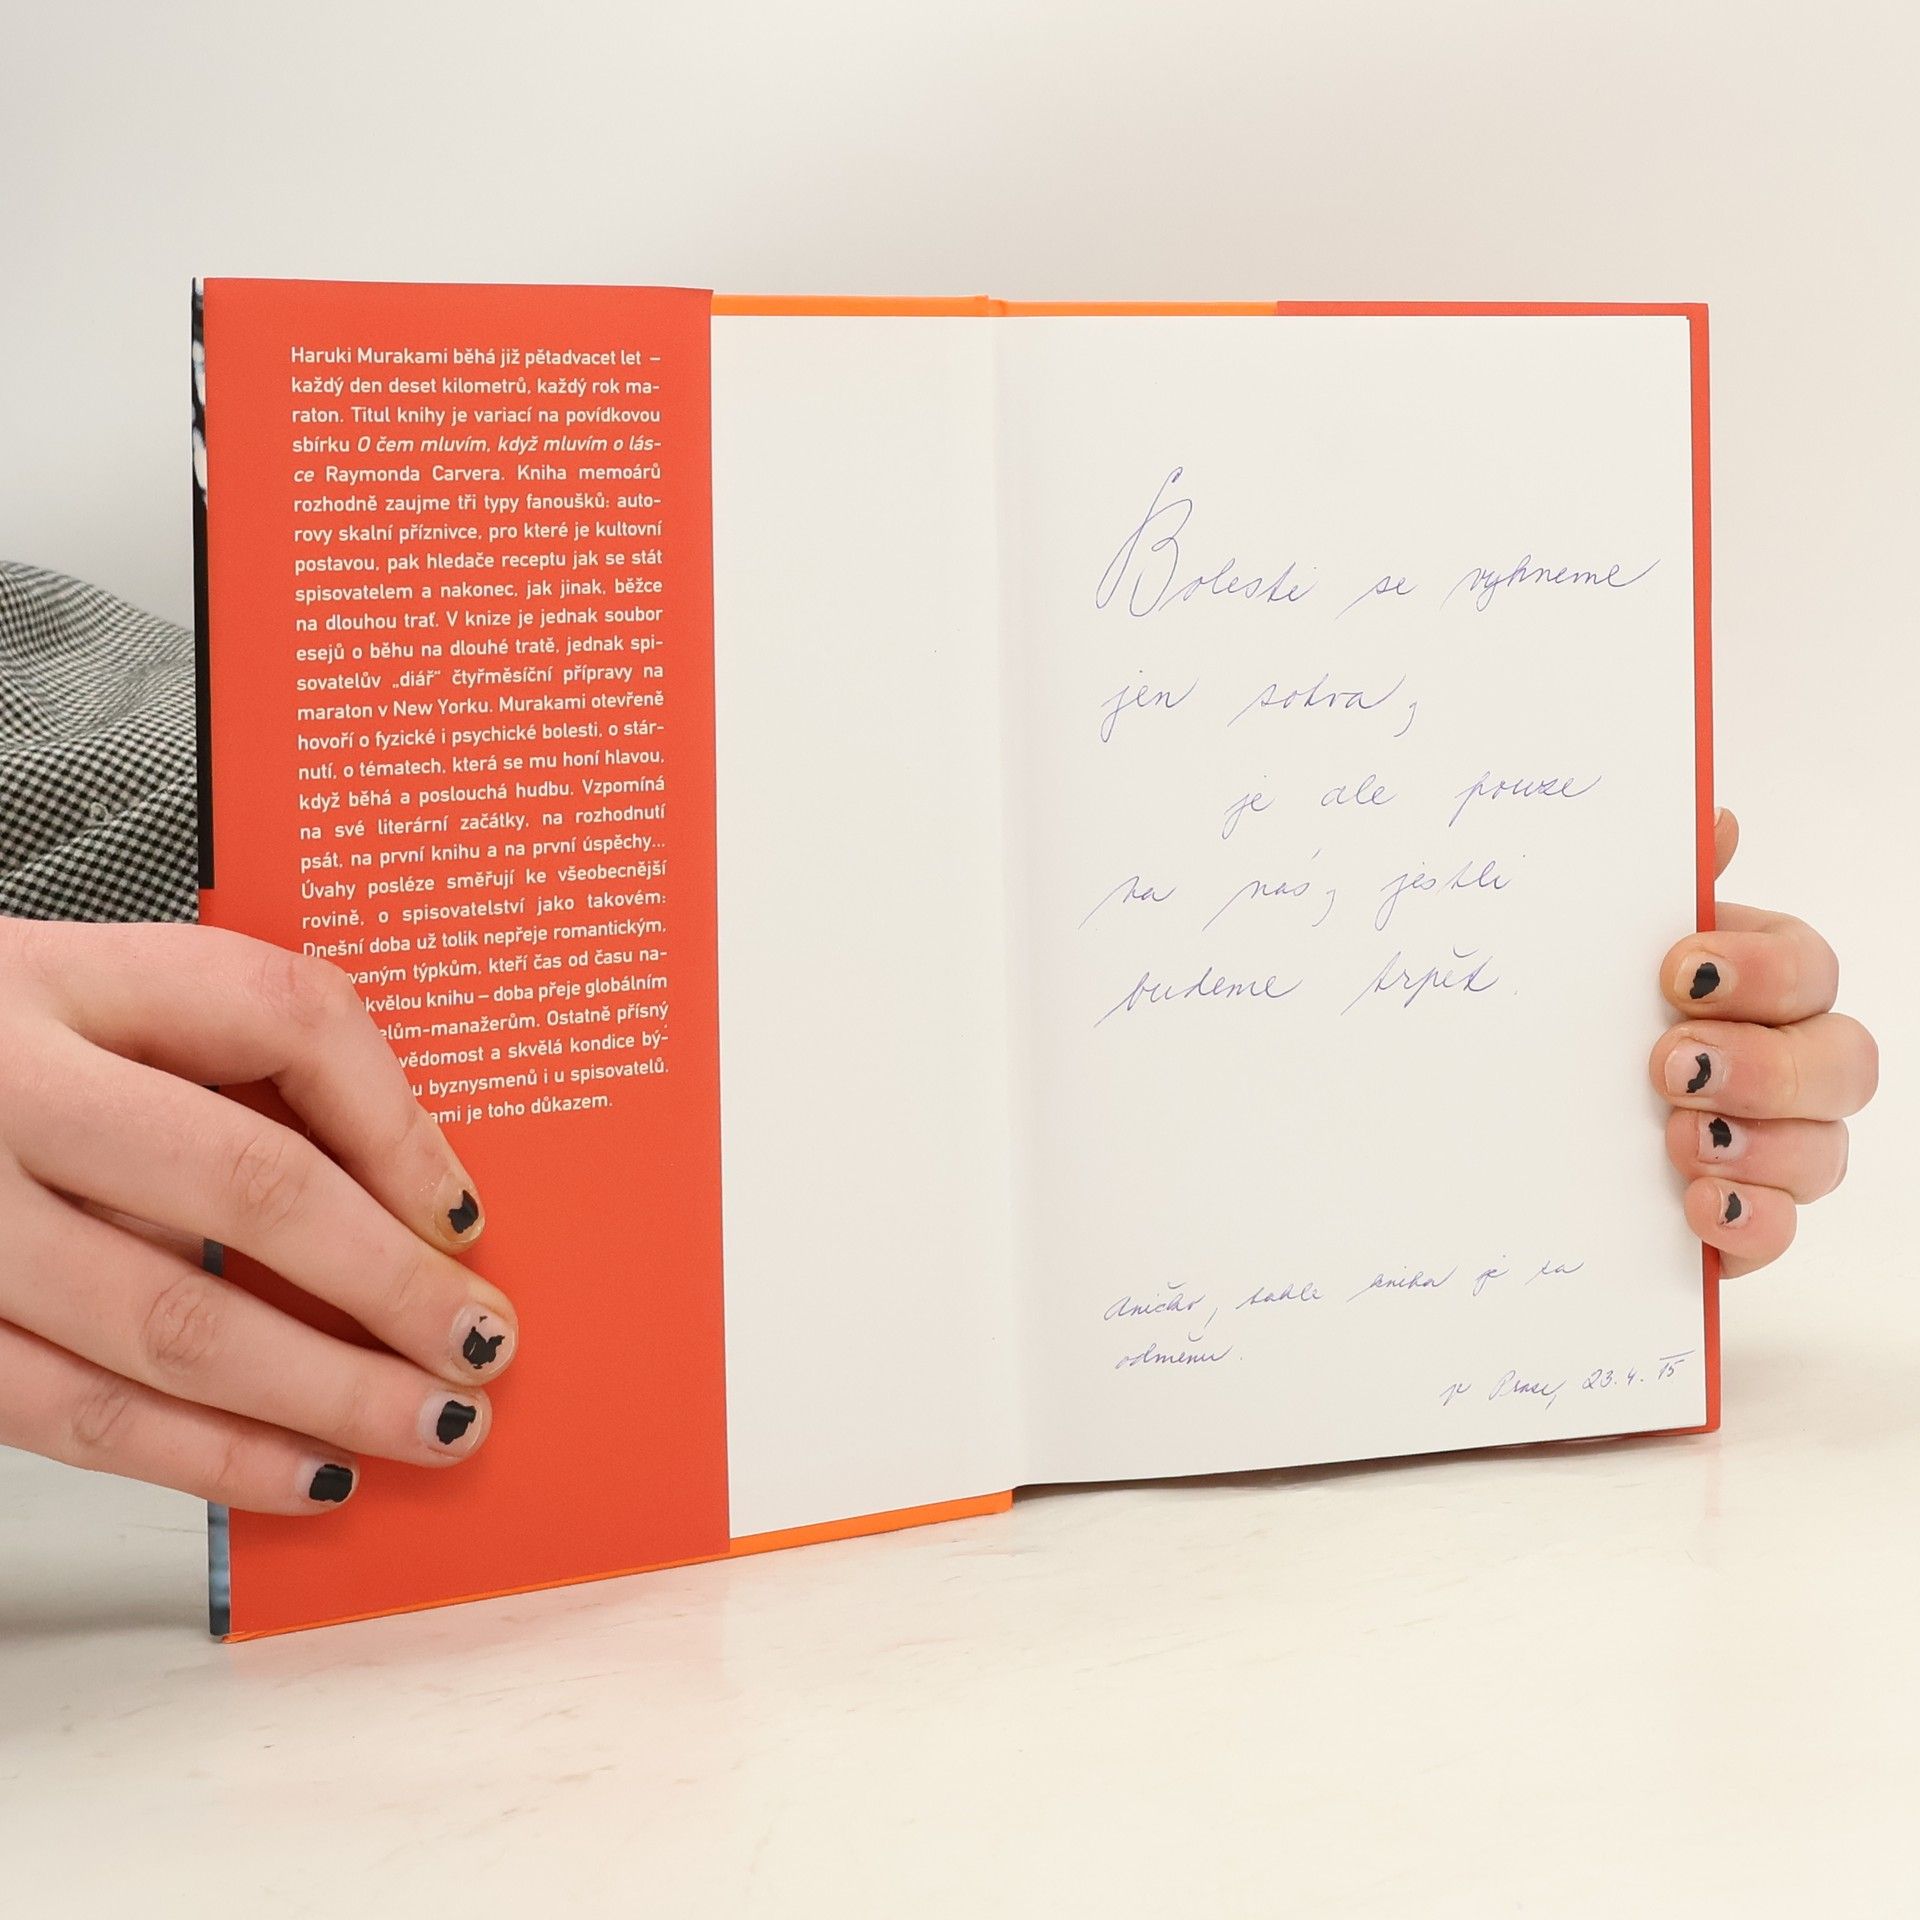 Haruki Murakami běhá již pětadvacet let –
každý den deset kilometrů, každý rok ma-
raton. Titul knihy je variací na povídkovou
sbírku O čem mluvím, když mluvím o lás-
ce Raymonda Carvera. Kniha memoárů
rozhodně zaujme tři typy fanoušků: auto-
rovy skalní příznivce, pro které je kultovní
postavou, pak hledače receptu jak se stát
spisovatelem a nakonec, jak jinak, běžce
na dlouhou trať. V knize je jednak soubor
esejů o běhu na dlouhé tratě, jednak spi-
sovatelův „diář“ čtyřměsíční přípravy na
maraton v New Yorku. Murakami otevřeně
hovoří o fyzické i psychické bolesti, o stár-
nutí, o tématech, která se mu honí hlavou,
když běhá a poslouchá hudbu. Vzpomíná
na své literární začátky, na rozhodnutí
psát, na první knihu a na první úspěchy...
Úvahy posléze směřují ke všeobecnější
rovině, o spisovatelství jako takovém:
Dnešní doba už tolik nepřeje romantickým,
vaným týpkům, kteří čas od času na-
kvělou knihu – doba přeje globálním
elům-manažerům. Ostatně přísný
vědomost a skvělá kondice bý-
u byznysmenů i u spisovatelů.
ami je toho důkazem.
Bolesti se vyhneme
jen sotva,
je ale pouze
na nás, jestli
budeme trpět.
Aničko, tahle kniha je za
odměnu.
v Praze, 23.4.15